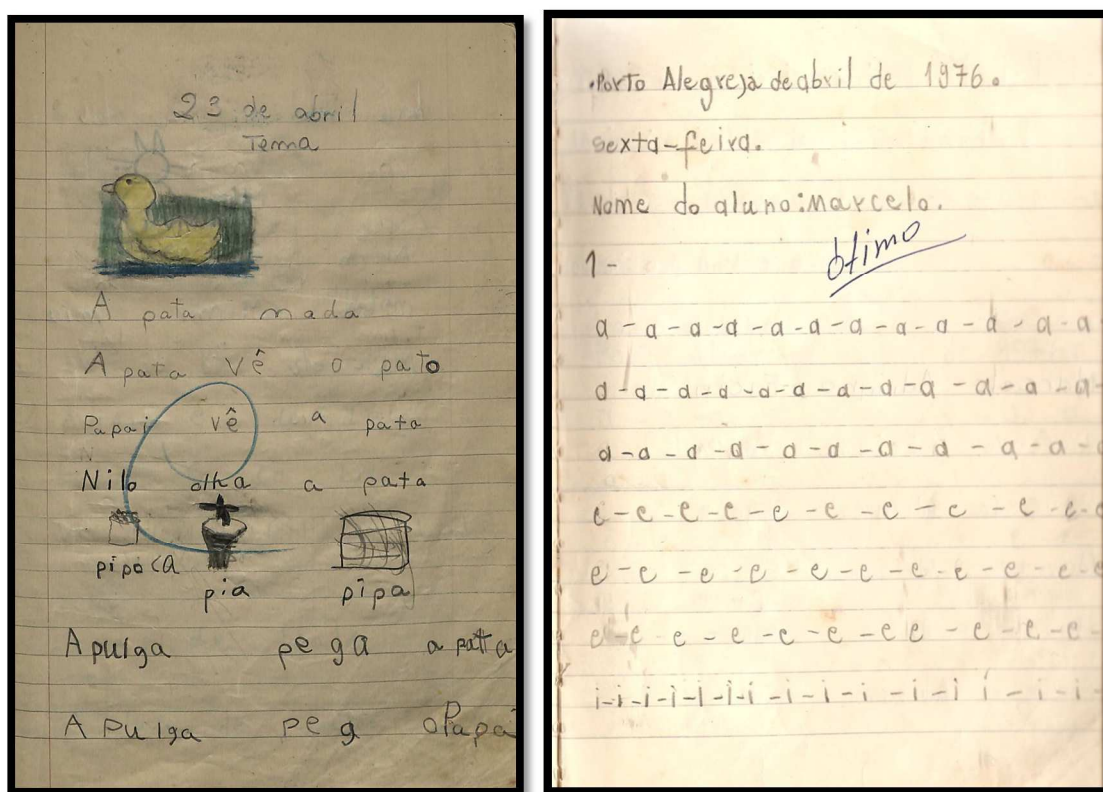 23 de abril
Tema
A pata nada
A pata vê o pato
Papai vê a pata
N
Nilo olha a pata
pipoca pia pipa
A pulga pega a pata
A Pulga peg o Papa
Porto Alegre de abril de 1976.
sexta-feira.
Nome do aluno: Marcelo.
1- ótimo
a - a - a - a - a - a - a - a - a - a - a - a
a - a - a - a - a - a - a - a - a - a - a - a -
a - a - a - a - a - a - a - a - a - a - a
e - e - e - e - e - e - e - e - e - e - e
e - e - e - e - e - e - e - e - e - e - e
e - e e - e - e - e - e e - e - e - e -
i - i - i - i - i - i - i - i - i - i - i - i i - i - i -